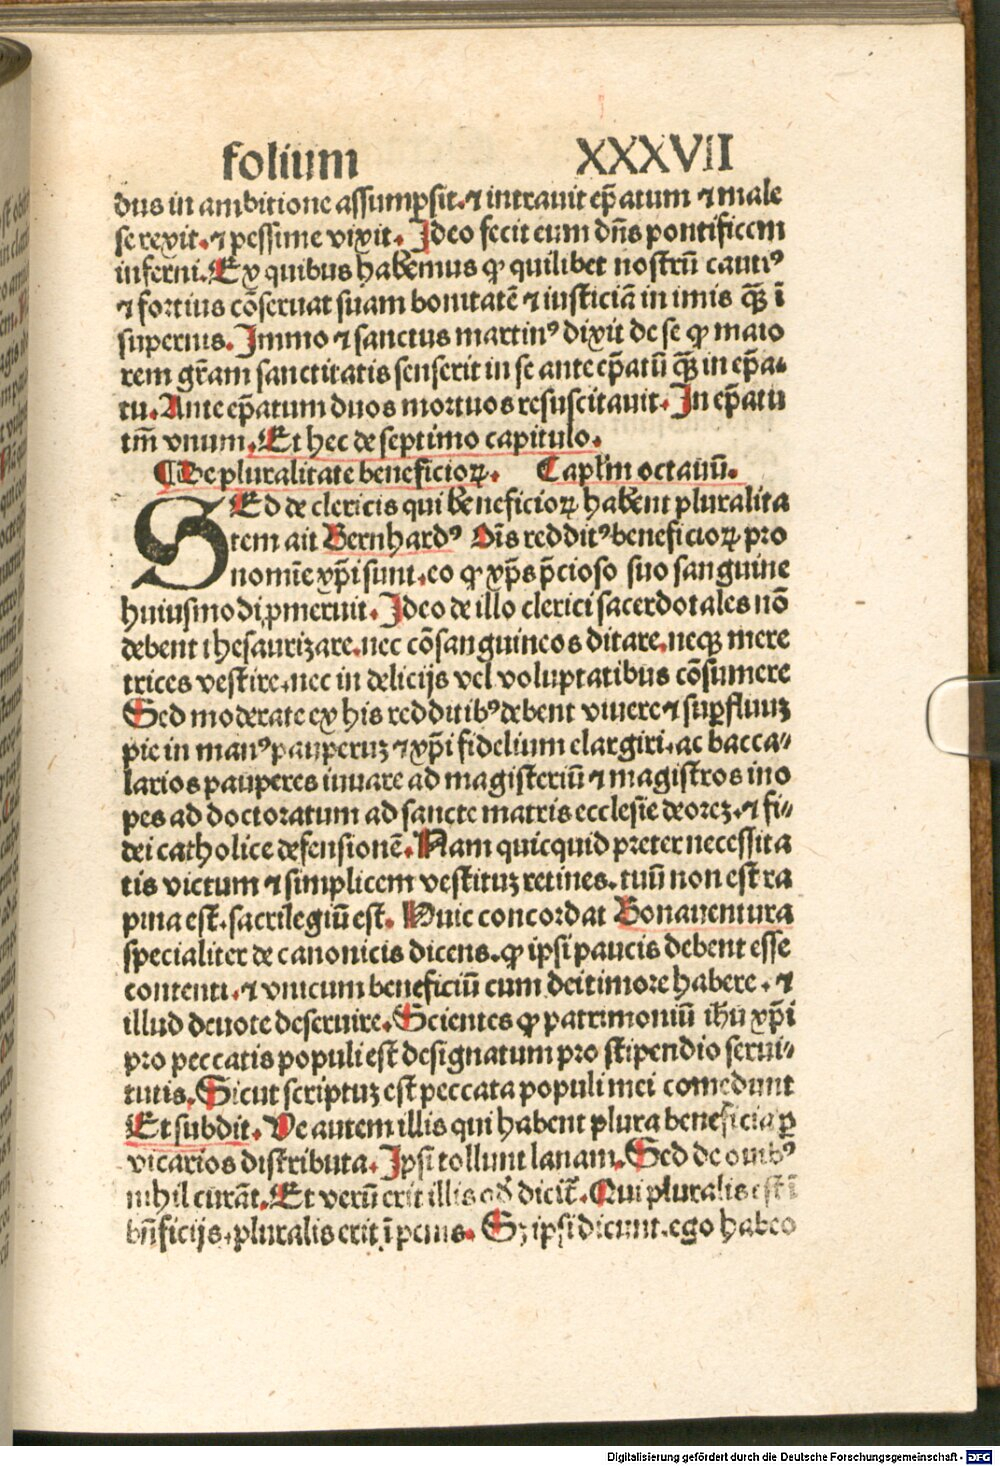 folium XXXVII
dus in ambitione assumpsit. ⁊ intrauit ep̄atum ⁊ male
se rexit. ⁊ pessime vixit. Ideo fecit eum dn̄s pontificem
inferni. Ex quibus habemus ꝙ quilibet nostrū cautiꝰ
⁊ fortius cōseruat suam bonitatē ⁊ iusticiā in imis qȝ̄ ī
supernis. Immo ⁊ sanctus martinꝰ dixit de se ꝙ maio
rem gr̄am sanctitatis senserit in se ante ep̄atū qȝ̄ in ep̄a-
tu. Ante ep̄atum duos mortuos resuscitauit. In ep̄atu
tm̄ vnum. Et hec de septimo capitulo.
¶ De pluralitate beneficioꝝ. Capl̄m octauū.
SEd de clericis qui beneficioꝝ habent pluralita
tem ait Bernhardꝰ Oīs redditꝰ beneficioꝝ pro
nomīe xp̄i sunt. eo ꝙ xp̄s p̄cioso suo sanguine
huiusmodi ꝓmeruit. Ideo de illo clerici sacerdotales nō
debent thesaurizare. nec cōsanguineos ditare. neqȝ mere
trices vestire. nec in delicijs vel voluptatibus cōsumere
Sed moderate ex his redditibꝰ debent viuere ⁊ suꝑfluuȝ
pie in manꝰ pauperuȝ ⁊ xp̄i fidelium elargiri. ac bacca-
larios pauperes iuuare ad magisteriū ⁊ magistros ino
pes ad doctoratum ad sancte matris ecclesie decoreȝ. ⁊ fi-
dei catholice defensionē. Nam quicquid preter necessita
tis victum ⁊ simplicem vestituȝ retines. tuū non est ra
pina est. sacrilegiū est. Huic concordat Bonauentura
specialiter de canonicis dicens. ꝙ ipsi paucis debent esse
contenti. ⁊ vnicum beneficiū cum dei timore habere. ⁊
illud deuote deseruire. Scientes ꝙ patrimoniū ih̄u xp̄i
pro peccatis populi est designatum pro stipendio serui-
tutis. Sicut scriptuȝ est peccata populi mei comedunt
Et subdit. Ve autem illis qui habent plura beneficia ꝑ
vicarios distributa. Ipsi tollunt lanam. Sed de ouibꝰ
nihil curāt. Et verū erit illis qd̄ dicit̄. Qui pluralis est ī
bn̄ficijs. pluralis erit ī penis. Sȝ ipsi dicunt. ego habeo
Digitalisierung gefördert durch die Deutsche Forschungsgemeinschaft - DFG